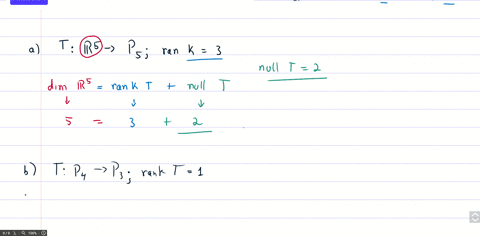 a) T: ℝ⁵ → P₅; ran k = 3
null T = 2
dim ℝ⁵ = rank T + null T
↓ ↓ ↓
5 = 3 + 2
b) T: P₄ → P₃; rank T = 1